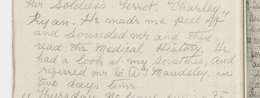 Her Soldiers Ferrot. "Charley
Ryan. He made me peel off
and Sounded me and then
read the Medical History. He
had a look at my scratches, and
referred me to A. Maudsley in
two days time.
Thursday